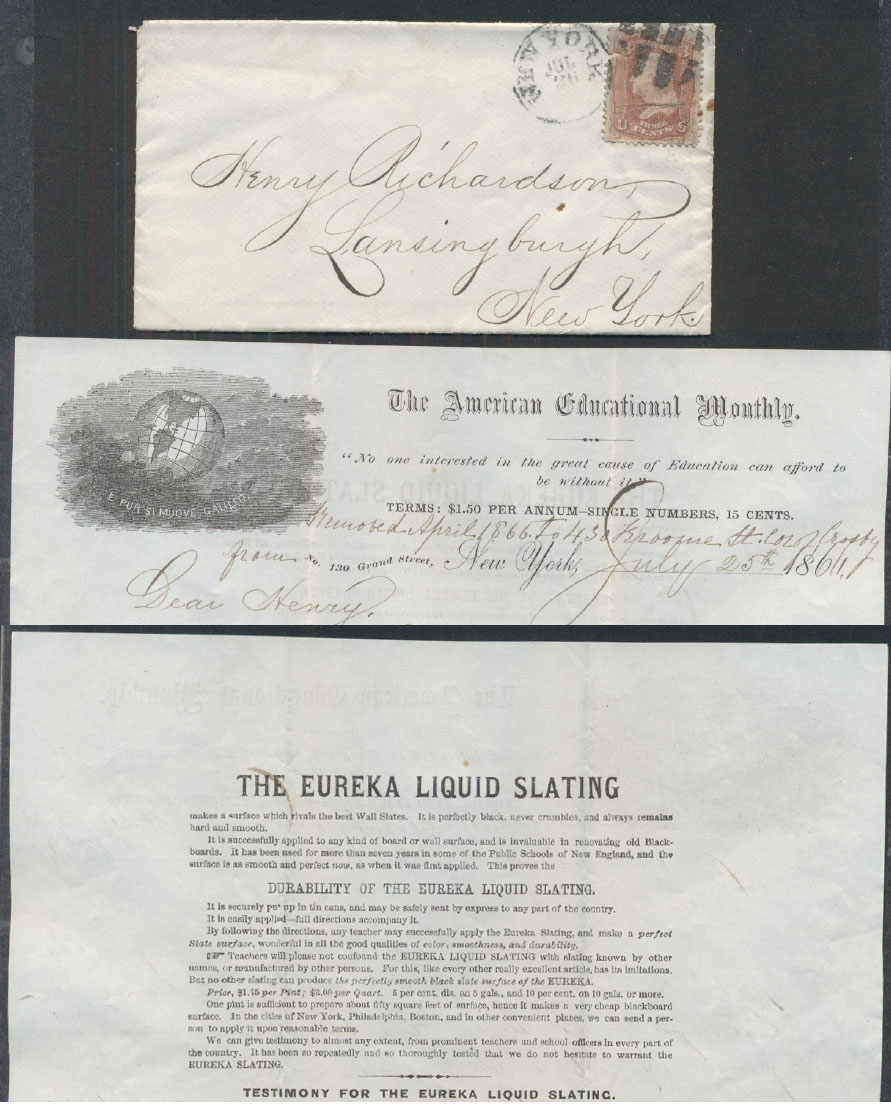 NEW YORK
JUL
26
U THREE CENTS S
Henry Richardson,
Lansingburgh,
New York.
The American Educational Monthly.
"No one interested in the great cause of Education can afford to
be without it."
TERMS: $1.50 PER ANNUM—SINGLE NUMBERS, 15 CENTS.
E PUR SI MUOVE, GALILEO.
Removed April 1866. to 430 Broome St. Cor of Crosby
from No. 130 Grand Street, New York, July 25th 186
Dear Henry.
THE EUREKA LIQUID SLATING
makes a surface which rivals the best Wall Slates. It is perfectly black, never crumbles, and always remains
hard and smooth.
It is successfully applied to any kind of board or wall surface, and is invaluable in renovating old Black-
boards. It has been used for more than seven years in some of the Public Schools of New England, and the
surface is as smooth and perfect now, as when it was first applied. This proves the
DURABILITY OF THE EUREKA LIQUID SLATING.
It is securely put up in tin cans, and may be safely sent by express to any part of the country.
It is easily applied—full directions accompany it.
By following the directions, any teacher may successfully apply the Eureka Slating, and make a perfect
Slate surface, wonderful in all the good qualities of color, smoothness, and durability.
☞ Teachers will please not confound the EUREKA LIQUID SLATING with slating known by other
names, or manufactured by other persons. For this, like every other really excellent article, has its imitations.
But no other slating can produce the perfectly smooth black slate surface of the EUREKA.
Price, $1.75 per Pint; $3.00 per Quart. 5 per cent. dis. on 5 gals., and 10 per cent. on 10 gals. or more.
One pint is sufficient to prepare about fifty square feet of surface, hence it makes a very cheap blackboard
surface. In the cities of New York, Philadelphia, Boston, and in other convenient places, we can send a per-
son to apply it upon reasonable terms.
We can give testimony to almost any extent, from prominent teachers and school officers in every part of
the country. It has been so repeatedly and so thoroughly tested that we do not hesitate to warrant the
EUREKA SLATING.
TESTIMONY FOR THE EUREKA LIQUID SLATING.